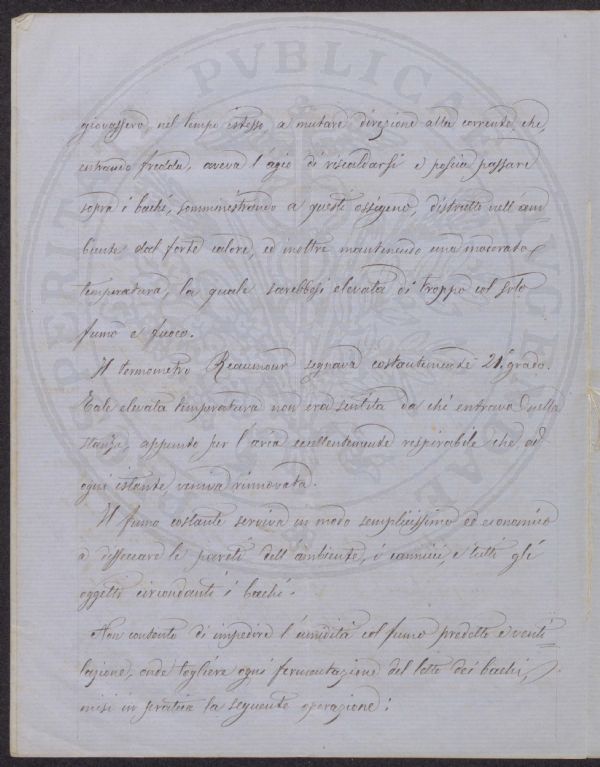 giovassero, nel tempo istesso, a mutare direzione alla corrente che,
entrando fredda, aveva l'agio di riscaldarsi e poscia passare
sopra i bachi, somministrando a questi ossigeno, distrutto nell'am-
biente dal forte calore, ed inoltre mantenendo una moderata
temperatura, la quale sarebbesi elevata di troppo col solo
fumo e fuoco.
Il termometro Reaumour segnava costantemente 21.° grado.
Tale elevata temperatura non era sentita da chi entrava nella
stanza, appunto per l'aria eccellentemente respirabile che ad
ogni istante veniva rinnovata.
Il fumo costante serviva in modo semplicissimo ed economico
a disseccare le pareti dell'ambiente, i cannicci, e tutti gli
oggetti circondanti i bachi.
Non contento di impedire l'umidità col fumo predetto e venti-
lazione, onde togliere ogni fermentazione del letto dei bachi,
misi in pratica la seguente operazione:
PVBLICA